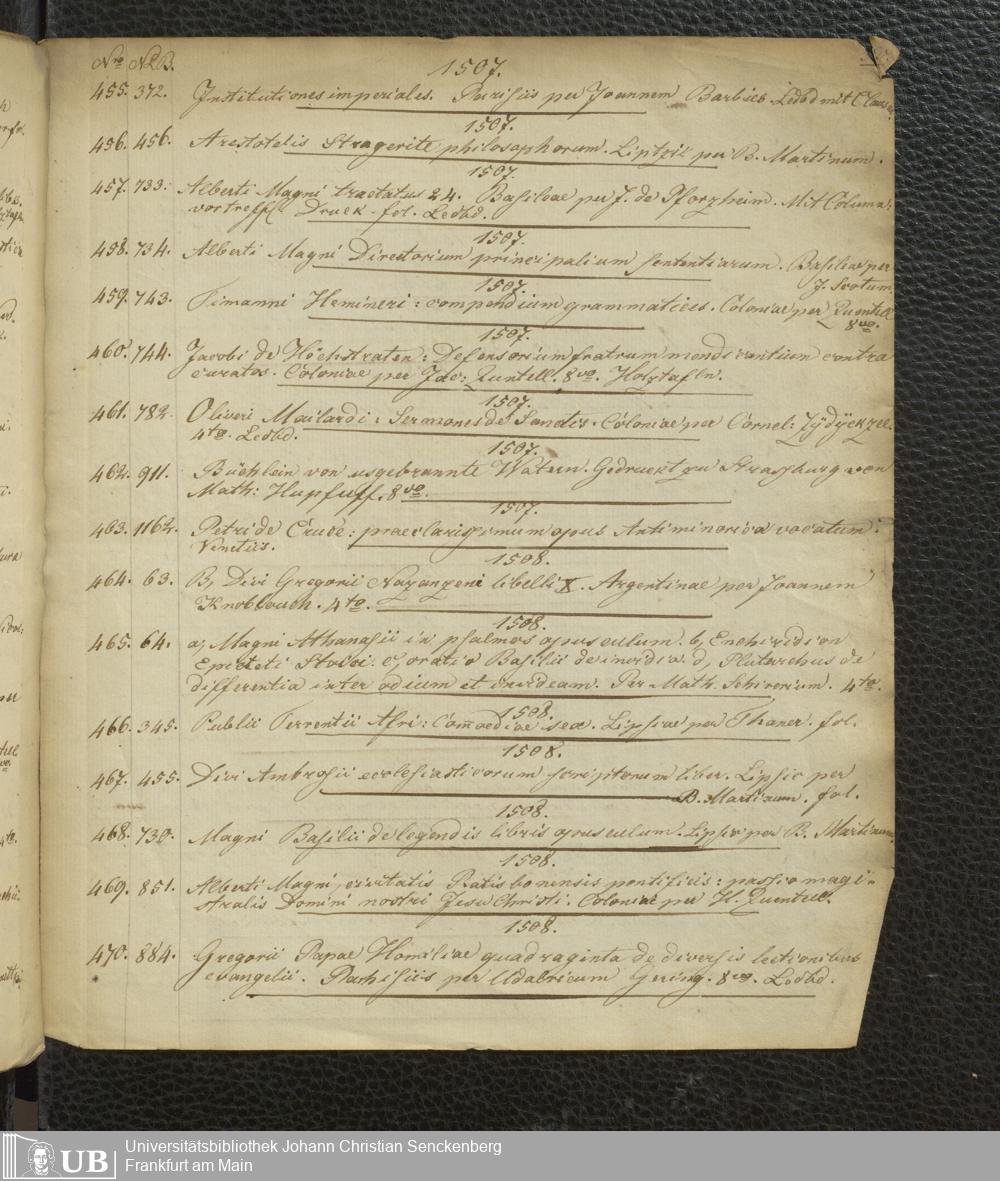 Nro NLB.
1507.
455. 372. Institutiones imperiales. Parisiis per Joannem Barbier. Ledbd mit Claus
1507.
456. 456. Arestotelis Stragerite philosophorum. Liptzic per B. Martinum.
1507.
457. 733. Alberti Magni tractatus 24. Basileae per J. de Pforzheim. Mit Columna,
vortreffl Druck. fol. Ledbd.
1507.
458. 734. Alberti Magni Directorium principalium sententiarum. Basileae per
J. Scotum
1507.
459. 743. Timanni Hemineri: compendium grammatices. Coloniae per Quentell
8vo.
1507.
460. 744. Jacobi de Höchstraten: Defensorium fratrum mendicantium contra
curatos. Coloniae per Quentell. 8vo. Holztafln.
1507.
461. 782. Oliveri Mailardi: Sermones de Sanctis. Coloniae per Cornel: Zÿdÿckzee.
4to. Ledbd.
1507.
462. 911. Büchlein von usgebrannte Watern. Gedruckt zu Strassburg von
Math: Hupfuff. 8vo.
1507.
463. 1162. Petri de Crude: praeclarissimum opus Antiminorica vocatum:
Venetiis.
1508.
464. 63. B, Divi Gregorii Nazanzeni libelli X. Argentinae per Joannem
Knoblouch. 4to.
1508.
465. 64. a, Magni Athanasii in psalmos opusculum. b, Enchiridion
Epicteti Stoici. c, oratio Basilii de invidia. d, Plutarchus de
differentia inter odium et invideam. Per Math. Schirerium. 4to.
1508.
466. 345. Publii Terrentii Afri: Com̄oediae sex. Lipsiae per Thaner. fol.
1508.
467. 455. Divi Ambrosii ecclesiasticorum scriptorum liber. Lipsic per
B. Martinum. fol.
1508.
468. 730. Magni Basilii de legendis libris opusculum. Lipsic per B. Martinum
1508.
469. 851. Alberti Magni, civitatis Ratisbonensis pontificis: passio magi-
stralis Domini nostri Jesu Christi. Coloniae per H. Quentell.
1508.
470. 884. Gregorii Papae Homiliae quadraginta de diversis lectionibus
evangelii. Parhisiis per Udalricum Gering. 8vo. Ledbd.
UB
Universitätsbibliothek Johann Christian Senckenberg
Frankfurt am Main